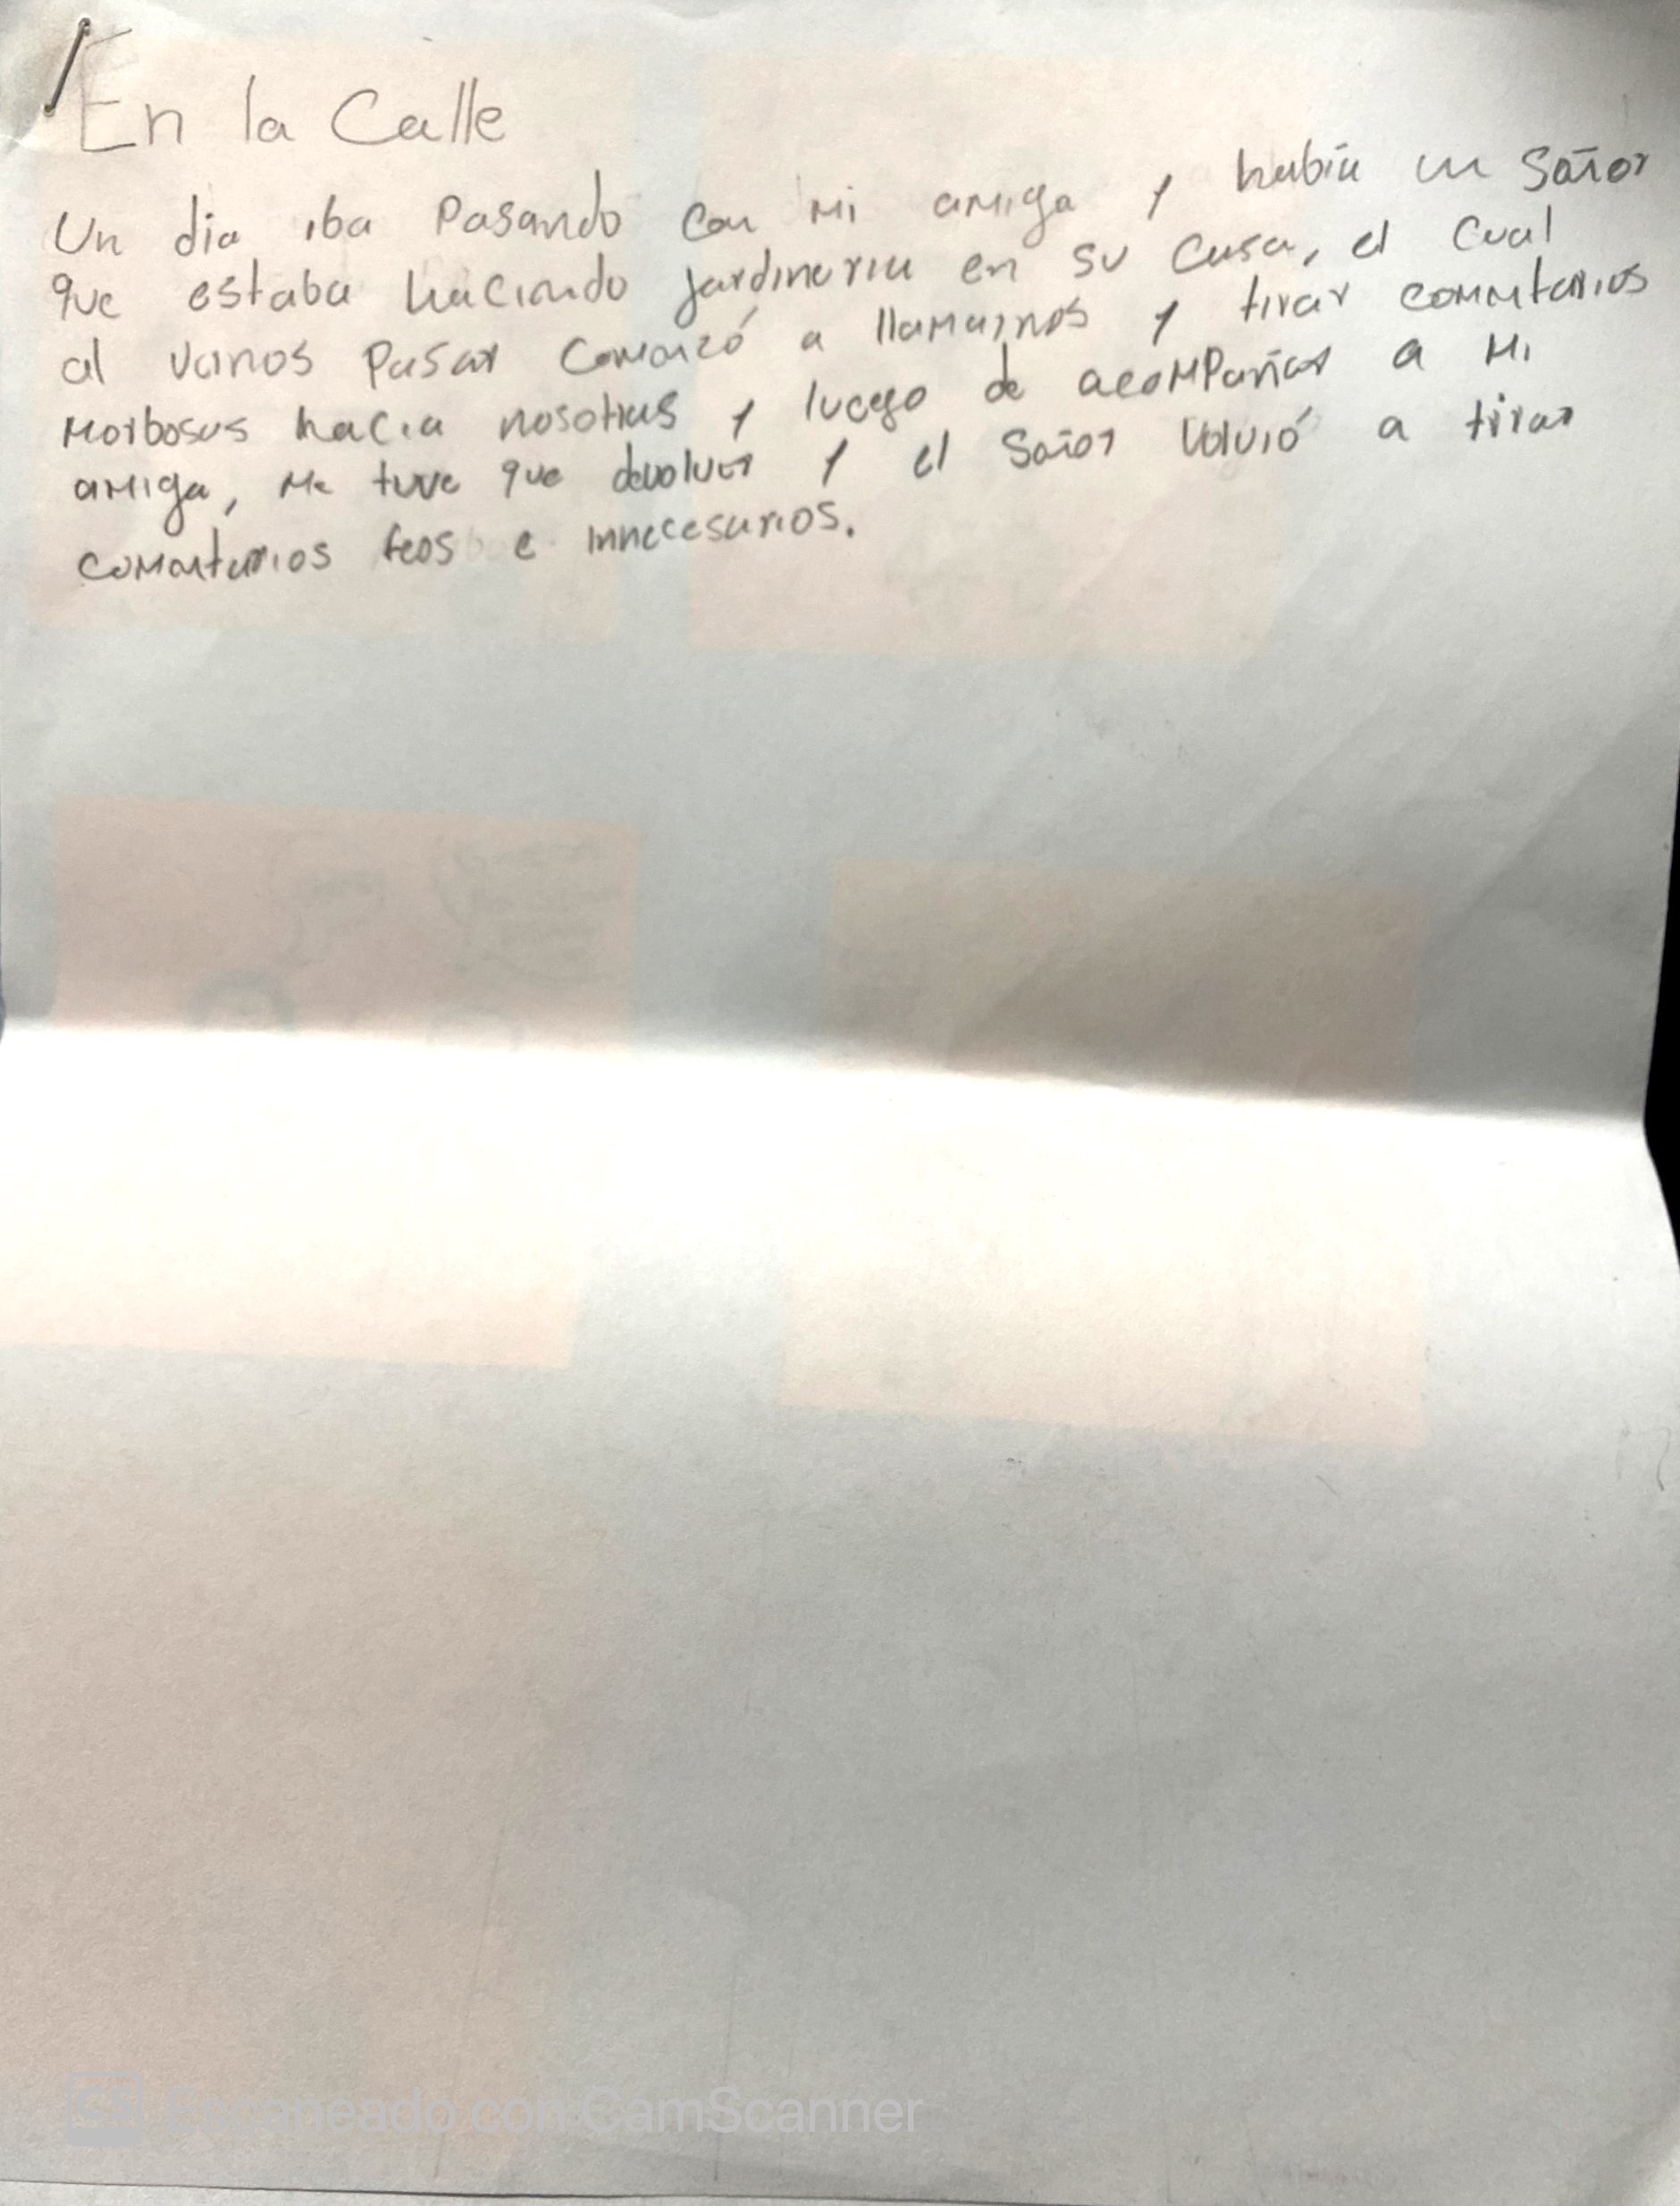 En la Calle
Un dia iba Pasando con mi amiga y había un Señor
que estaba haciendo jardineria en su casa, el cual
al vernos pasar comenzó a llamarnos y tirar comentarios
morbosos hacia nosotras y luego de acompañar a mi
amiga, me tuve que devolver y el Señor volvió a tirar
comentarios feos e innecesarios.
CS Escaneado con CamScanner